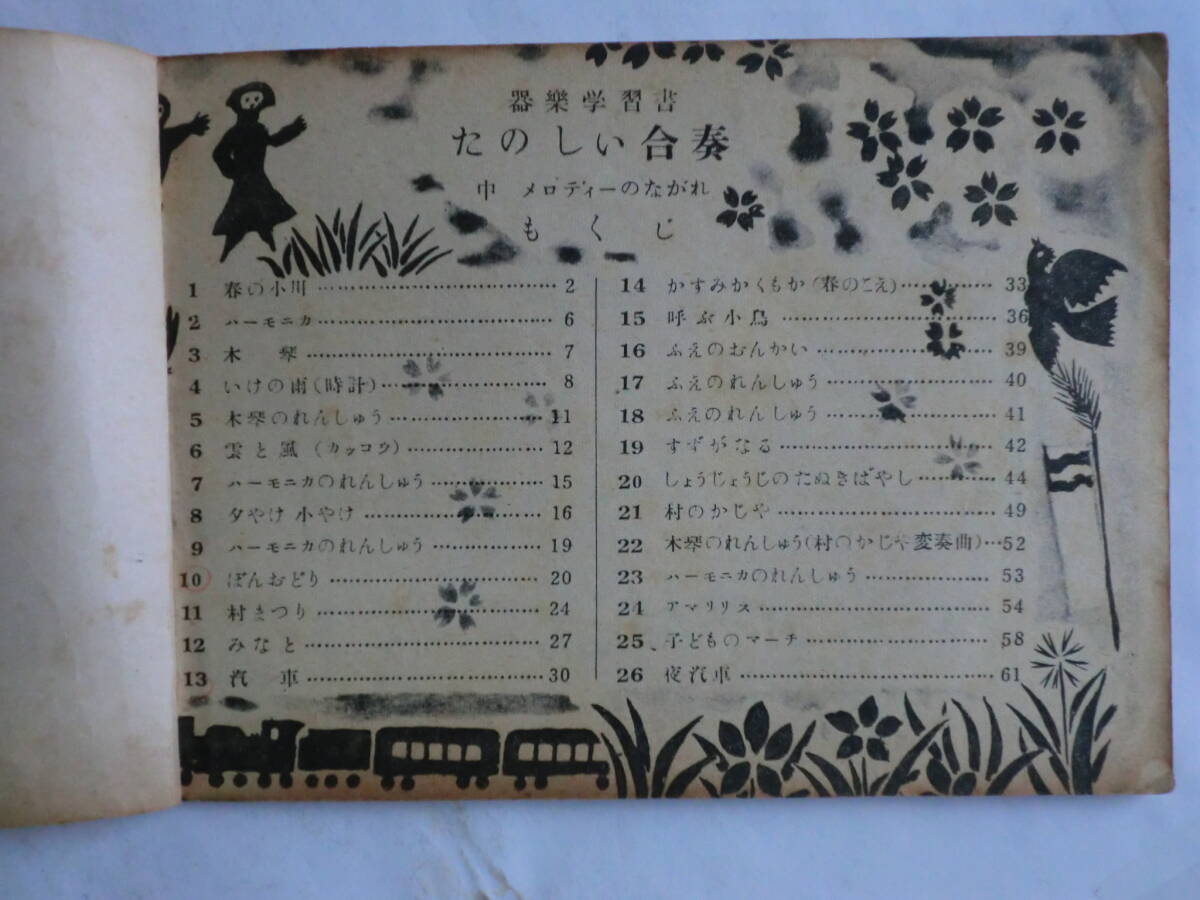 器樂学習書
たのしい合奏
中 メロディーのながれ
もくじ
1 春の小川 2
2 ハーモニカ 6
3 木琴 7
4 いけの雨(時計) 8
5 木琴のれんしゅう 11
6 雲と風(カッコウ) 12
7 ハーモニカのれんしゅう 15
8 夕やけ小やけ 16
9 ハーモニカのれんしゅう 19
10 ぼんおどり 20
11 村まつり 24
12 みなと 27
13 汽車 30
14 かすみかくもか(春のこえ) 33
15 呼ぶ小鳥 36
16 ふえのおんかい 39
17 ふえのれんしゅう 40
18 ふえのれんしゅう 41
19 すずがなる 42
20 しょうじょうじのたぬきばやし 44
21 村のかじや 49
22 木琴のれんしゅう(村のかじや変奏曲) 52
23 ハーモニカのれんしゅう 53
24 アマリリス 54
25 子どものマーチ 58
26 夜汽車 61